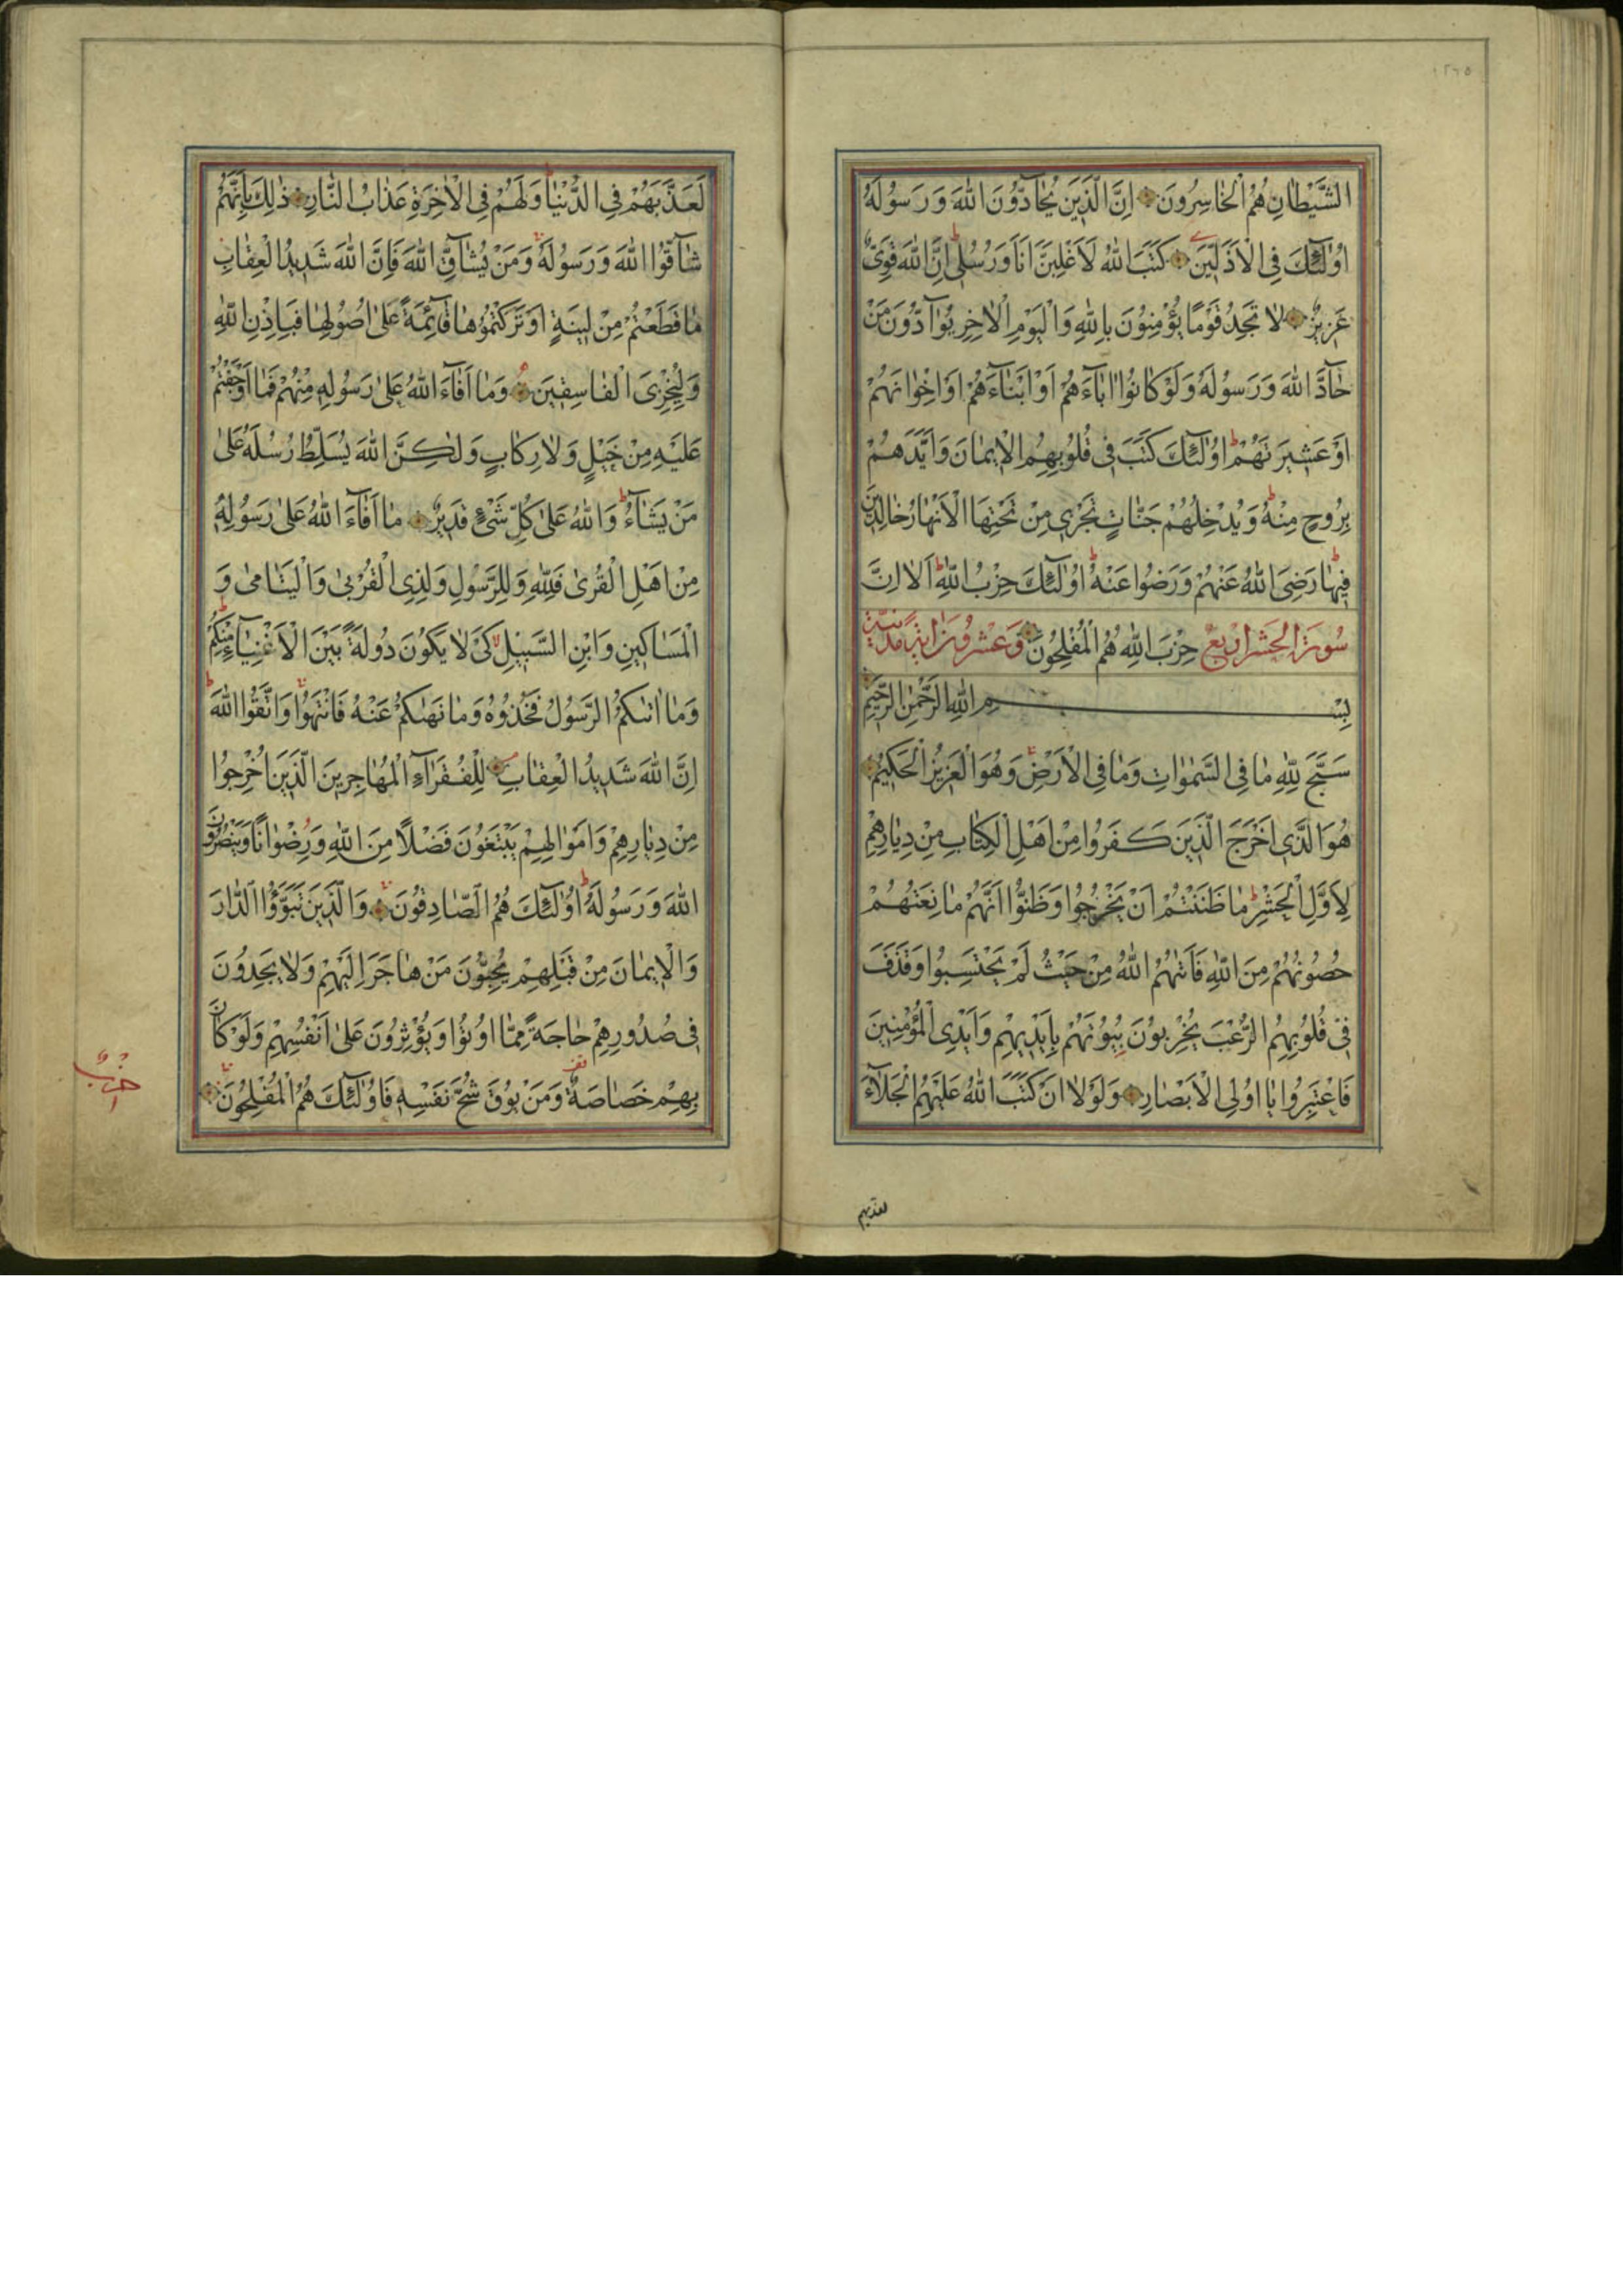 ١٢٦٥
الشَّيْطَانِ هُمُ الْخَاسِرُونَ اِنَّ الَّذِينَ يُحَادُّونَ اللّٰهَ وَرَسُولَهُ
اُولٰٓئِكَ فِى الْاَذَلِّينَ كَتَبَ اللّٰهُ لَاَغْلِبَنَّ اَنَا وَرُسُلِى اِنَّ اللّٰهَ قَوِىٌّ
عَزِيزٌ لَا تَجِدُ قَوْمًا يُؤْمِنُونَ بِاللّٰهِ وَالْيَوْمِ الْاٰخِرِ يُوَآدُّونَ مَنْ
حَآدَّ اللّٰهَ وَرَسُولَهُ وَلَوْ كَانُوا اٰبَاءَهُمْ اَوْ اَبْنَاءَهُمْ اَوْ اِخْوَانَهُمْ
اَوْ عَشِيرَتَهُمْ ط اُولٰٓئِكَ كَتَبَ فِى قُلُوبِهِمُ الْاِيمَانَ وَاَيَّدَهُمْ
بِرُوحٍ مِنْهُ ط وَيُدْخِلُهُمْ جَنَّاتٍ تَجْرِى مِنْ تَحْتِهَا الْاَنْهَارُ خَالِدِينَ
فِيهَا ط رَضِىَ اللّٰهُ عَنْهُمْ وَرَضُوا عَنْهُ ط اُولٰٓئِكَ حِزْبُ اللّٰهِ ط اَلَا اِنَّ
سُورَةُ الْحَشْرِ اَرْبَعٌ حِزْبَ اللّٰهِ هُمُ الْمُفْلِحُونَ وَعِشْرُونَ اٰيَةً مَدَنِيَّةٌ
بِسْمِ اللّٰهِ الرَّحْمٰنِ الرَّحِيمِ
سَبَّحَ لِلّٰهِ مَا فِى السَّمٰوَاتِ وَمَا فِى الْاَرْضِ وَهُوَ الْعَزِيزُ الْحَكِيمُ
هُوَ الَّذِى اَخْرَجَ الَّذِينَ كَفَرُوا مِنْ اَهْلِ الْكِتَابِ مِنْ دِيَارِهِمْ
لِاَوَّلِ الْحَشْرِ ط مَا ظَنَنْتُمْ اَنْ يَخْرُجُوا وَظَنُّوا اَنَّهُمْ مَانِعَتُهُمْ
حُصُونُهُمْ مِنَ اللّٰهِ فَاَتٰهُمُ اللّٰهُ مِنْ حَيْثُ لَمْ يَحْتَسِبُوا وَقَذَفَ
فِى قُلُوبِهِمُ الرُّعْبَ يُخْرِبُونَ بُيُوتَهُمْ بِاَيْدِيهِمْ وَاَيْدِى الْمُؤْمِنِينَ
فَاعْتَبِرُوا يَا اُولِى الْاَبْصَارِ وَلَوْلَا اَنْ كَتَبَ اللّٰهُ عَلَيْهِمُ الْجَلَاءَ
لعذبهم
لَعَذَّبَهُمْ فِى الدُّنْيَا ط وَلَهُمْ فِى الْاٰخِرَةِ عَذَابُ النَّارِ ذٰلِكَ بِاَنَّهُمْ
شَآقُّوا اللّٰهَ وَرَسُولَهُ وَمَنْ يُشَآقِّ اللّٰهَ فَاِنَّ اللّٰهَ شَدِيدُ الْعِقَابِ
مَا قَطَعْتُمْ مِنْ لِينَةٍ اَوْ تَرَكْتُمُوهَا قَآئِمَةً عَلٰى اُصُولِهَا فَبِاِذْنِ اللّٰهِ
وَلِيُخْزِىَ الْفَاسِقِينَ وَمَا اَفَآءَ اللّٰهُ عَلٰى رَسُولِهِ مِنْهُمْ فَمَا اَوْجَفْتُمْ
عَلَيْهِ مِنْ خَيْلٍ وَلَا رِكَابٍ وَلٰكِنَّ اللّٰهَ يُسَلِّطُ رُسُلَهُ عَلٰى
مَنْ يَشَآءُ ط وَاللّٰهُ عَلٰى كُلِّ شَىْءٍ قَدِيرٌ مَا اَفَآءَ اللّٰهُ عَلٰى رَسُولِهِ
مِنْ اَهْلِ الْقُرٰى فَلِلّٰهِ وَلِلرَّسُولِ وَلِذِى الْقُرْبٰى وَالْيَتَامٰى وَ
الْمَسَاكِينِ وَابْنِ السَّبِيلِ كَىْ لَا يَكُونَ دُولَةً بَيْنَ الْاَغْنِيَآءِ مِنْكُمْ ط
وَمَا اٰتٰكُمُ الرَّسُولُ فَخُذُوهُ وَمَا نَهٰكُمْ عَنْهُ فَانْتَهُوا وَاتَّقُوا اللّٰهَ ط
اِنَّ اللّٰهَ شَدِيدُ الْعِقَابِ لِلْفُقَرَآءِ الْمُهَاجِرِينَ الَّذِينَ اُخْرِجُوا
مِنْ دِيَارِهِمْ وَاَمْوَالِهِمْ يَبْتَغُونَ فَضْلًا مِنَ اللّٰهِ وَرِضْوَانًا وَيَنْصُرُونَ
اللّٰهَ وَرَسُولَهُ ط اُولٰٓئِكَ هُمُ الصَّادِقُونَ وَالَّذِينَ تَبَوَّؤُا الدَّارَ
وَالْاِيمَانَ مِنْ قَبْلِهِمْ يُحِبُّونَ مَنْ هَاجَرَ اِلَيْهِمْ وَلَا يَجِدُونَ
فِى صُدُورِهِمْ حَاجَةً مِمَّا اُوتُوا وَيُؤْثِرُونَ عَلٰى اَنْفُسِهِمْ وَلَوْ كَانَ
بِهِمْ خَصَاصَةٌ وَمَنْ يُوقَ شُحَّ نَفْسِهِ فَاُولٰٓئِكَ هُمُ الْمُفْلِحُونَ
حزب